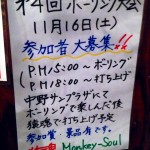 第4回ボーリング大会
11月16日(土)
参加者大募集!!
(P.M)5:00〜ボーリング
(P.M)8:00〜打ち上げ
中野サンプラザにて
ボーリングで楽しんだ後
猿魂で打ち上げ予定
参加賞・景品有です。
Monkey-Soul